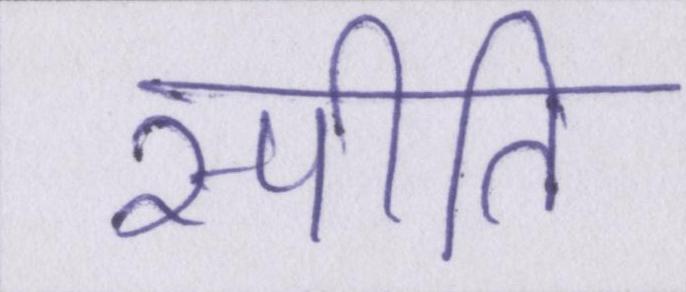 स्पीति